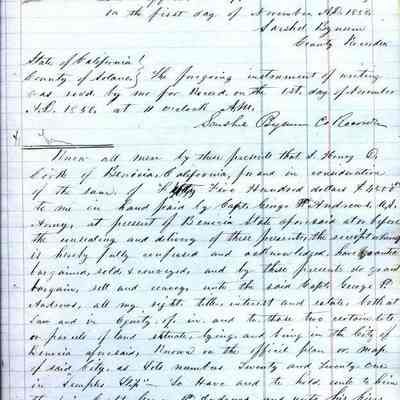 in the first day of November A.D. 1858.
County Recorder
State of California }
County of Solano } The foregoing instrument of writing
was recd. by me for Record on the 1st. day of November
A.D. 1858. at 11 o'clock A.M.
Bynum Co Recorder
Know all men by these presents that I. Henry
Cook of Benicia, California, for and in consideration
of the sum of Five Hundred dollars
to me in hand paid by Capt. George P. Andrews, U.S.
Army, at present of Benicia State aforesaid at or before
the unsealing and delivery of these presents, the receipt whereof
is hereby fully confessed and acknowledged, have granted
bargained, sold & conveyed, and by these presents do grant
bargain, sell and convey unto the said Capt. George P.
Andrews, all my right title, interest and estate, both at
Law and in Equity, of, in, and to those two certain lots
or parcels of land, situate, lying and being in the City of
Benicia aforesaid, Known on the official plan or map
of said City, as Lots numbers Twenty and Twenty One
in "Semples Slip" - To Have and to hold unto him
the said Capt. Geo. P. Andrews and unto his heirs